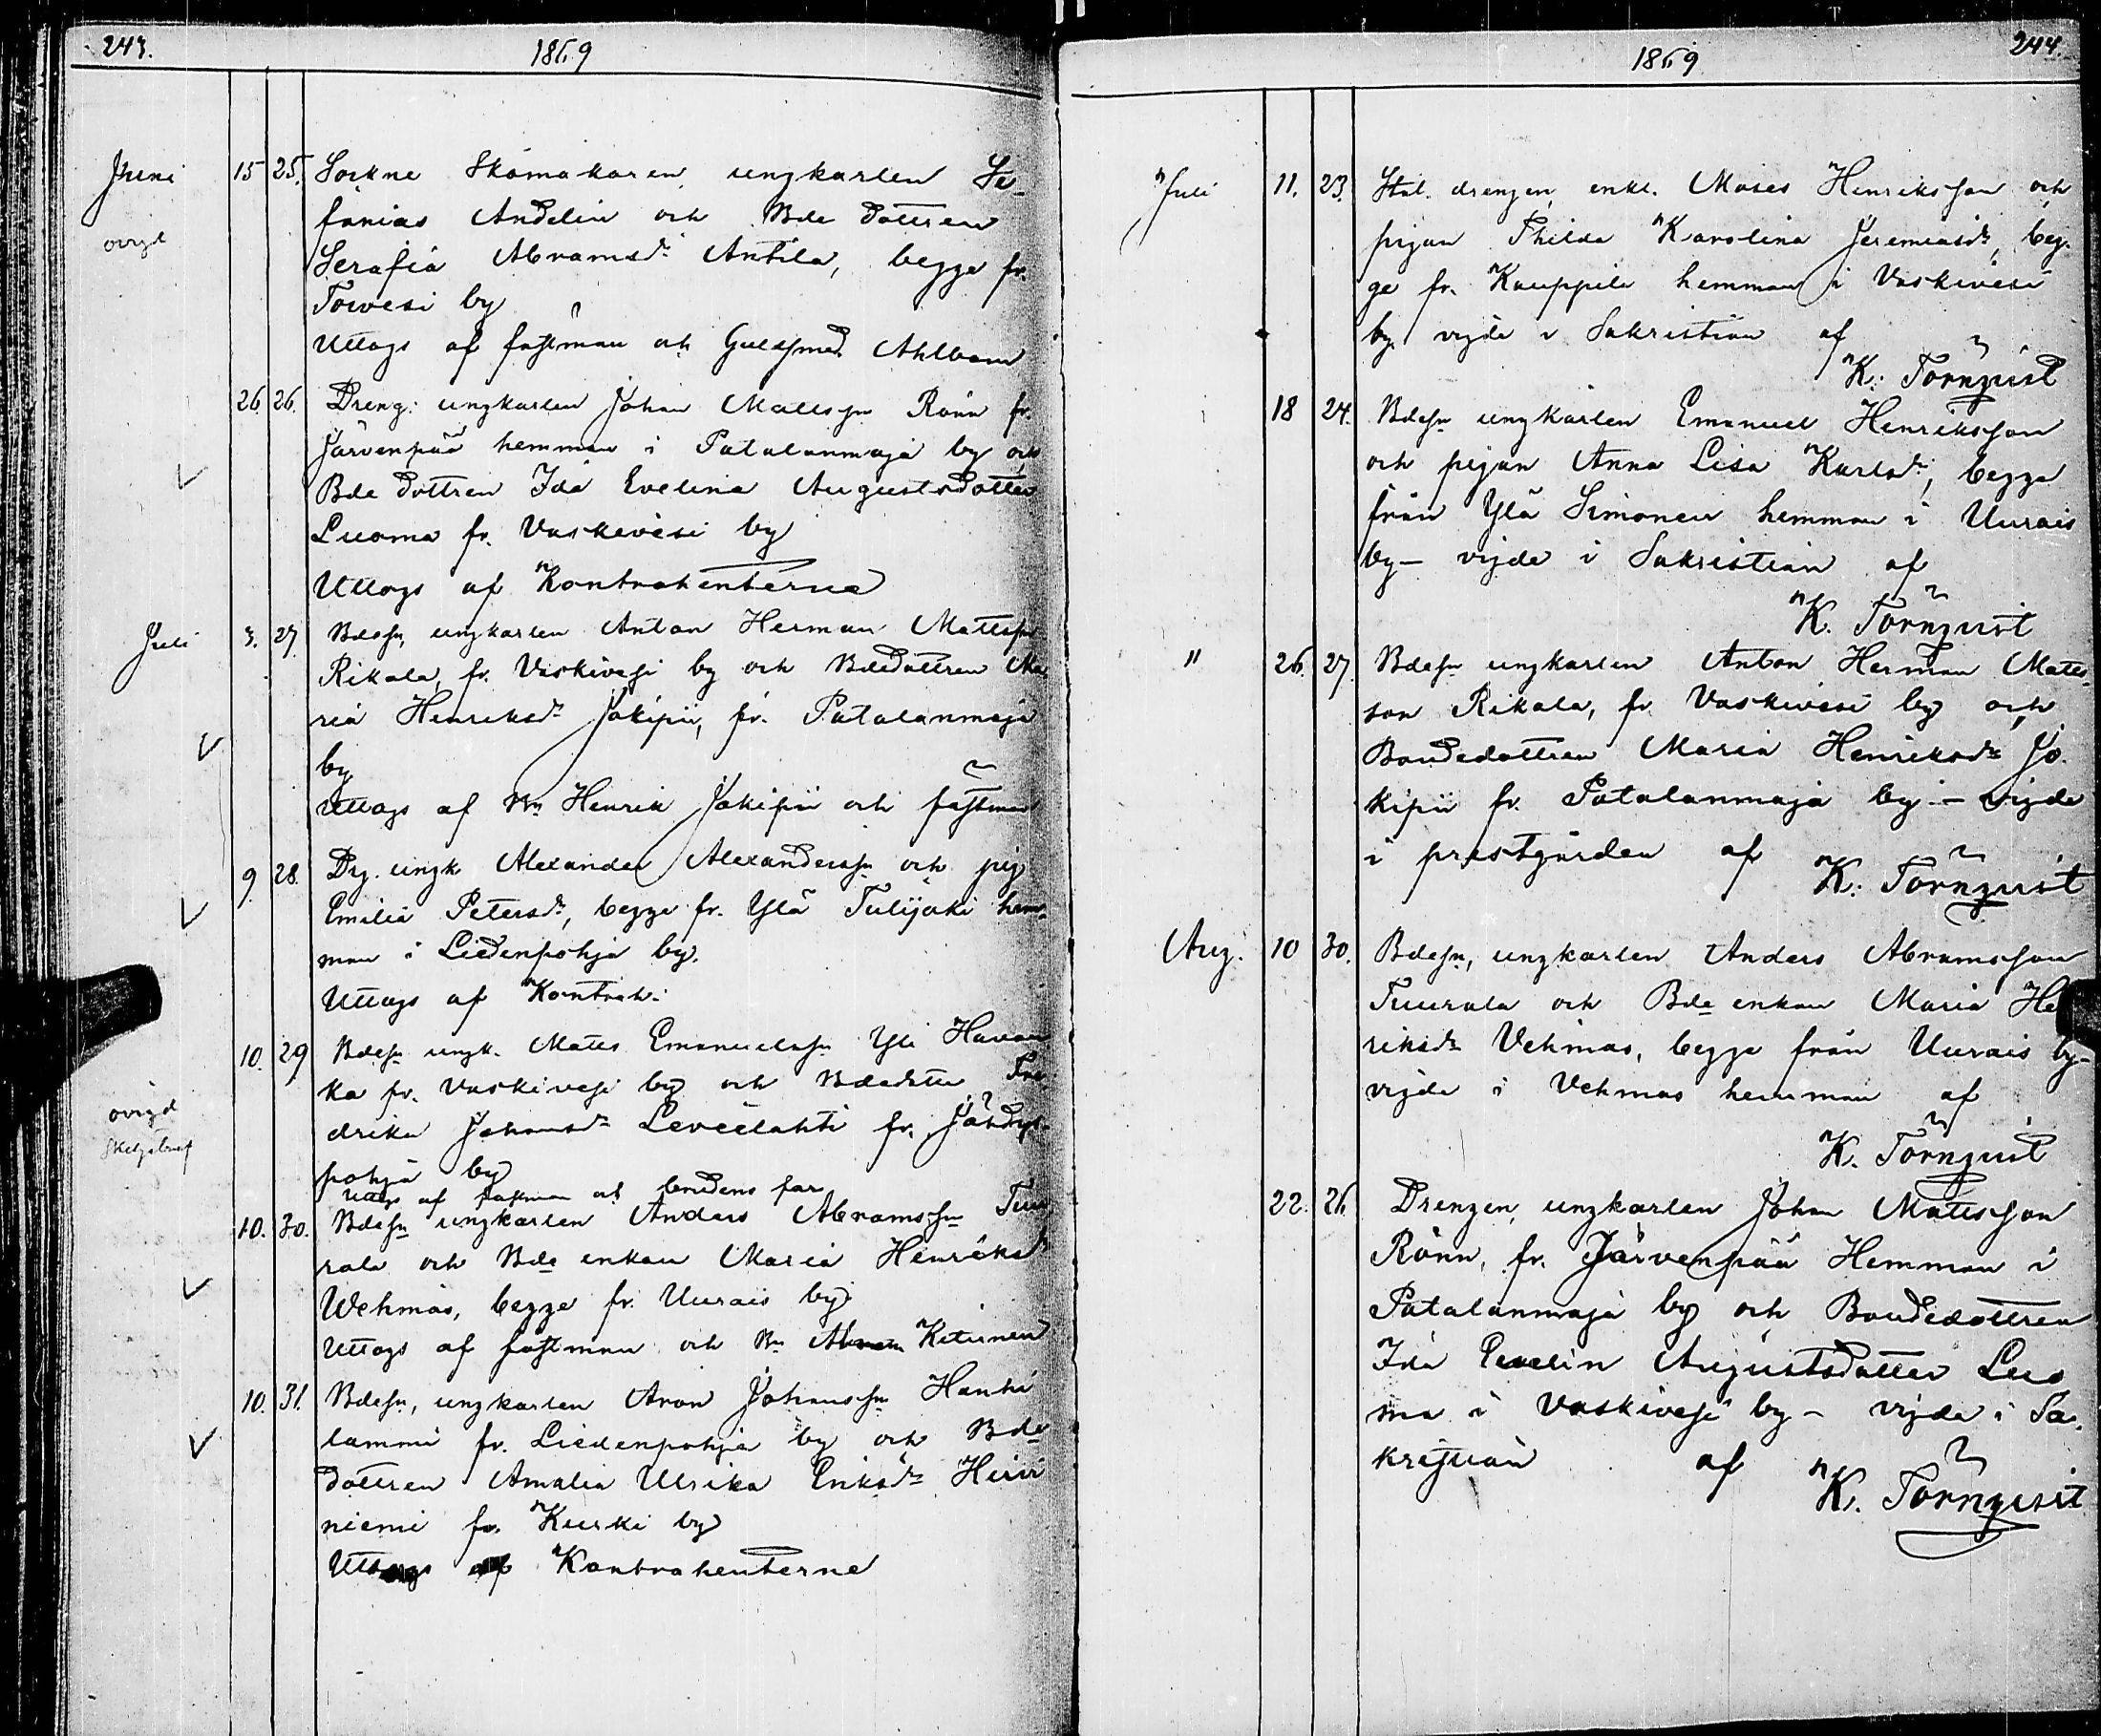 243.
1869
Juni 15 25. Sockne Skomakaren, ungkarlen Se-
ovigd
fanias Andelin och Bde dottren
Serafia Abramsdr Antila, begge fr.
Torvesi by
Uttogs af fästman och Guldsmed Ahlbom
26. 26. Dreng. ungkarlen Johan Mattsson Rönn fr.
Järvenpää hemman i Patalanmaja by och
Bde dottren Ida Evelina Augustsdotter
Luoma fr. Vaskivesi by
Uttogs af Kontrahenterne
Juli 3. 27. Bdesn, ungkarlen Anton Herman Mattsson
Rikala, fr. Vaskivesi by och Bdedottren Ma
ria Henriksdr Jokipii, fr. Patalanmaja
by
Uttogs af Bn Henrik Jokipii och fästman
9. 28. Dg. ungk Alexander Alexandersn och pig
Emilia Petersdr, begge fr. Ylä Tulijoki hem-
man i Liedenpohja by.
Uttogs af Kontrah:
10. 29 Bdesn ungk. Matts Emanuelsn Yli Havan
ka fr. Vaskivesi by och Bdedottr Fre
ovigd
drika Johansdr Leveelahti fr. Jähdys
Skelgsbref
pohja by
Uttogs af fästman och brudens far
10. 30. Bdesn ungkarlen Anders Abramsson Tuu
rala och Bde enkan Maria Henriksdr
Wehmas, begge fr. Uurais by
Uttogs af fästman och Bn Abram Ketunen
10. 31. Bdesn, ungkarlen Aron Johansson Hanhi
lammi fr. Liedenpohja by och Bde
dottren Amalia Ulrika Eriksdr Hirvi
niemi fr. Kurki by
Uttogs af Kontrahenterne
1869
244.
Juli 11. 23. Stal. drengen, enkl. Moses Henriksson och
pigan Thilda Karolina Jeremiasdr, beg-
ge fr. Kauppila hemman i Vaskivesi
by vigde i Sakristian af
K. Törnqvist
18 24. Bdesn ungkarlen Emanuel Henriksson
och pigan Anna Lisa Karlsdr, begge
från Ylä Simonen hemman i Uurais
by — vigde i Sakristian af
K. Törnqvist
" 26. 27. Bdesn ungkarlen Anton Herman Matts-
son Rikala, fr. Vaskivesi by och
Bondedottren Maria Henriksdr Jo-
kipii fr. Patalanmaja by — vigde
i prestgården af K. Törnqvist
Aug. 10 30. Bdesn, ungkarlen Anders Abramsson
Tuurala och Bde enkan Maria He
riksdr Vehmas, begge från Uurais by-
vigde i Vehmas hemman af
K. Törnqvist
22. 26. Drengen, ungkarlen Johan Mattsson
Rönn, fr. Järvenpää Hemman i
Patalanmaja by och Bondedottren
Ida Evelin Augustsdotter Luo
ma i Vaskivesi by — vigde i Sa-
kristian af K. Törnqvist